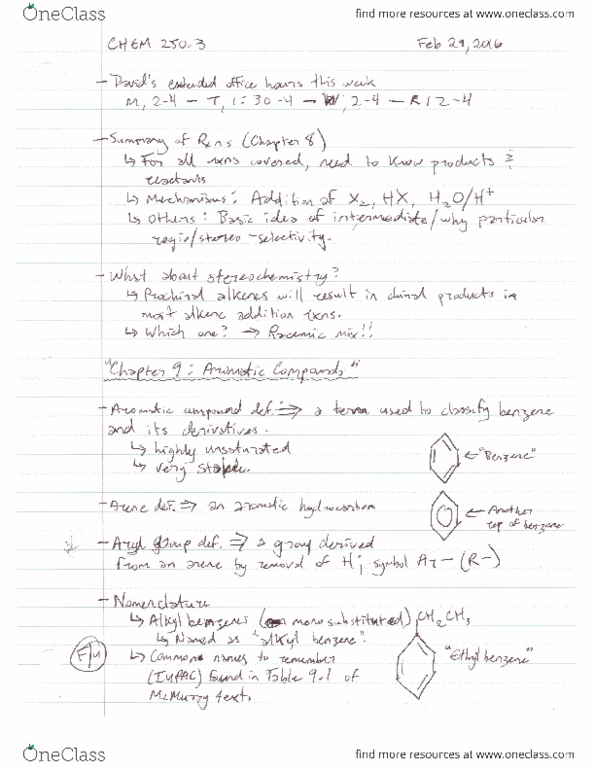 OneClass
find more resources at www.oneclass.com
CHEM 250.3
Feb 29, 2016
- David's extended office hours this week
M, 2-4 - T, 1:30-4 - W, 2-4 - R 12-4
- Summary of Rxns (Chapter 8)
↳ For all rxns covered, need to know products &
reactants
↳ Mechanisms: Addition of X2, HX, H2O/H+
↳ Others: Basic idea of intermediate/why particular
regio/stereo-selectivity.
- What about stereochemistry?
↳ Prochiral alkenes will result in chiral products in
most alkene addition rxns.
↳ Which one? → Racemic mix!!
"Chapter 9: Aromatic Compounds"
- Aromatic compound def. ⇒ a term used to classify benzene
and its derivatives.
↳ highly unsaturated
↳ very stable.
← "Benzene"
- Arene def. ⇒ an aromatic hydrocarbon
← Another
of benzene
- Aryl group def. ⇒ a group derived
from an arene by removal of H; symbol Ar- (R-)
- Nomenclature
↳ Alkyl benzenes (mono substituted)
CH2CH3
↳ Named as "alkyl benzene".
↳ Common names to remember
"Ethylbenzene"
(IUPAC) found in Table 9.1 of
McMurry text.
OneClass
find more resources at www.oneclass.com